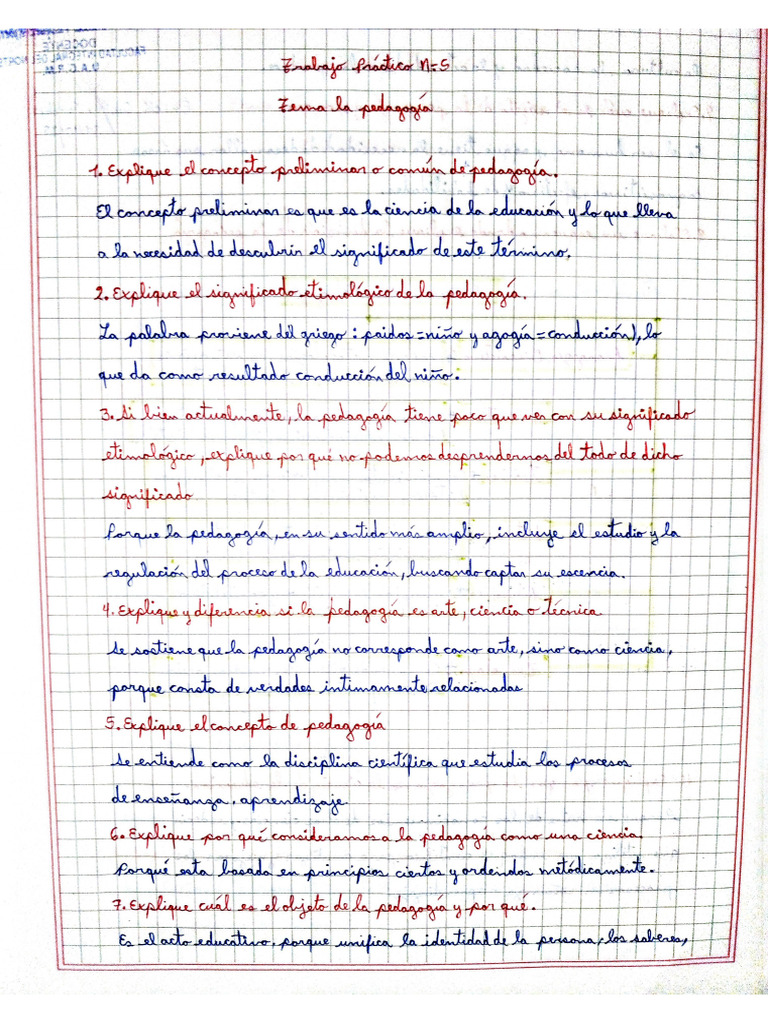 DOCENTE
FACULTAD INTEGRAL DEL NORTE
U.A.G.R.M.
Trabajo Práctico N=5
Tema la pedagogía
1. Explique el concepto preliminar o común de pedagogía.
El concepto preliminar es que es la ciencia de la educación y lo que lleva
a la necesidad de descubrir el significado de este término.
2. Explique el significado etimológico de la pedagogía.
La palabra proviene del griego : paidos = niño y agogía = conducción), lo
que da como resultado conducción del niño.
3. Si bien actualmente, la pedagogía tiene poco que ver con su significado
etimológico, explique por qué no podemos desprendernos del todo de dicho
significado
Porque la pedagogía, en su sentido más amplio, incluye el estudio y la
regulación del proceso de la educación, buscando captar su escencia.
4. Explique y diferencia si la pedagogía es arte, ciencia o técnica
Se sostiene que la pedagogía no corresponde como arte, sino como ciencia,
porque consta de verdades intimamente relacionadas
5. Explique el concepto de pedagogía
Se entiende como la disciplina científica que estudia los procesos
de enseñanza. aprendizaje
6. Explique por qué consideramos a la pedagogía como una ciencia.
Porqué esta basada en principios ciertos y ordendos metódicamente.
7. Explique cuál es el objeto de la pedagogía y por qué.
Es el acto educativo, porque unifica la identidad de la persona, los saberes,